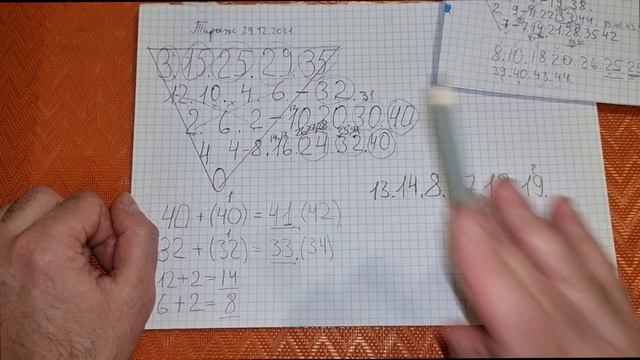 Тираж 29.12.2021.
3. 15. 25. 29. 35
12. 10. 4. 6 - 32. 31
2. 6. 2 - 10. 20. 30. 40
4. 4 - 8. 16. 24. 32. 40
0
40 + (40) = 41 (42)
32 + (32) = 33. (34)
12+2 = 14
6+2 = 8
13. 14. 8. 19.
38.
2. 9 - 9. 22. 33. 44
7 - 7. 14. 21. 28. 35 42
8. 10. 18. 20. 26. 25
39. 40. 43. 44